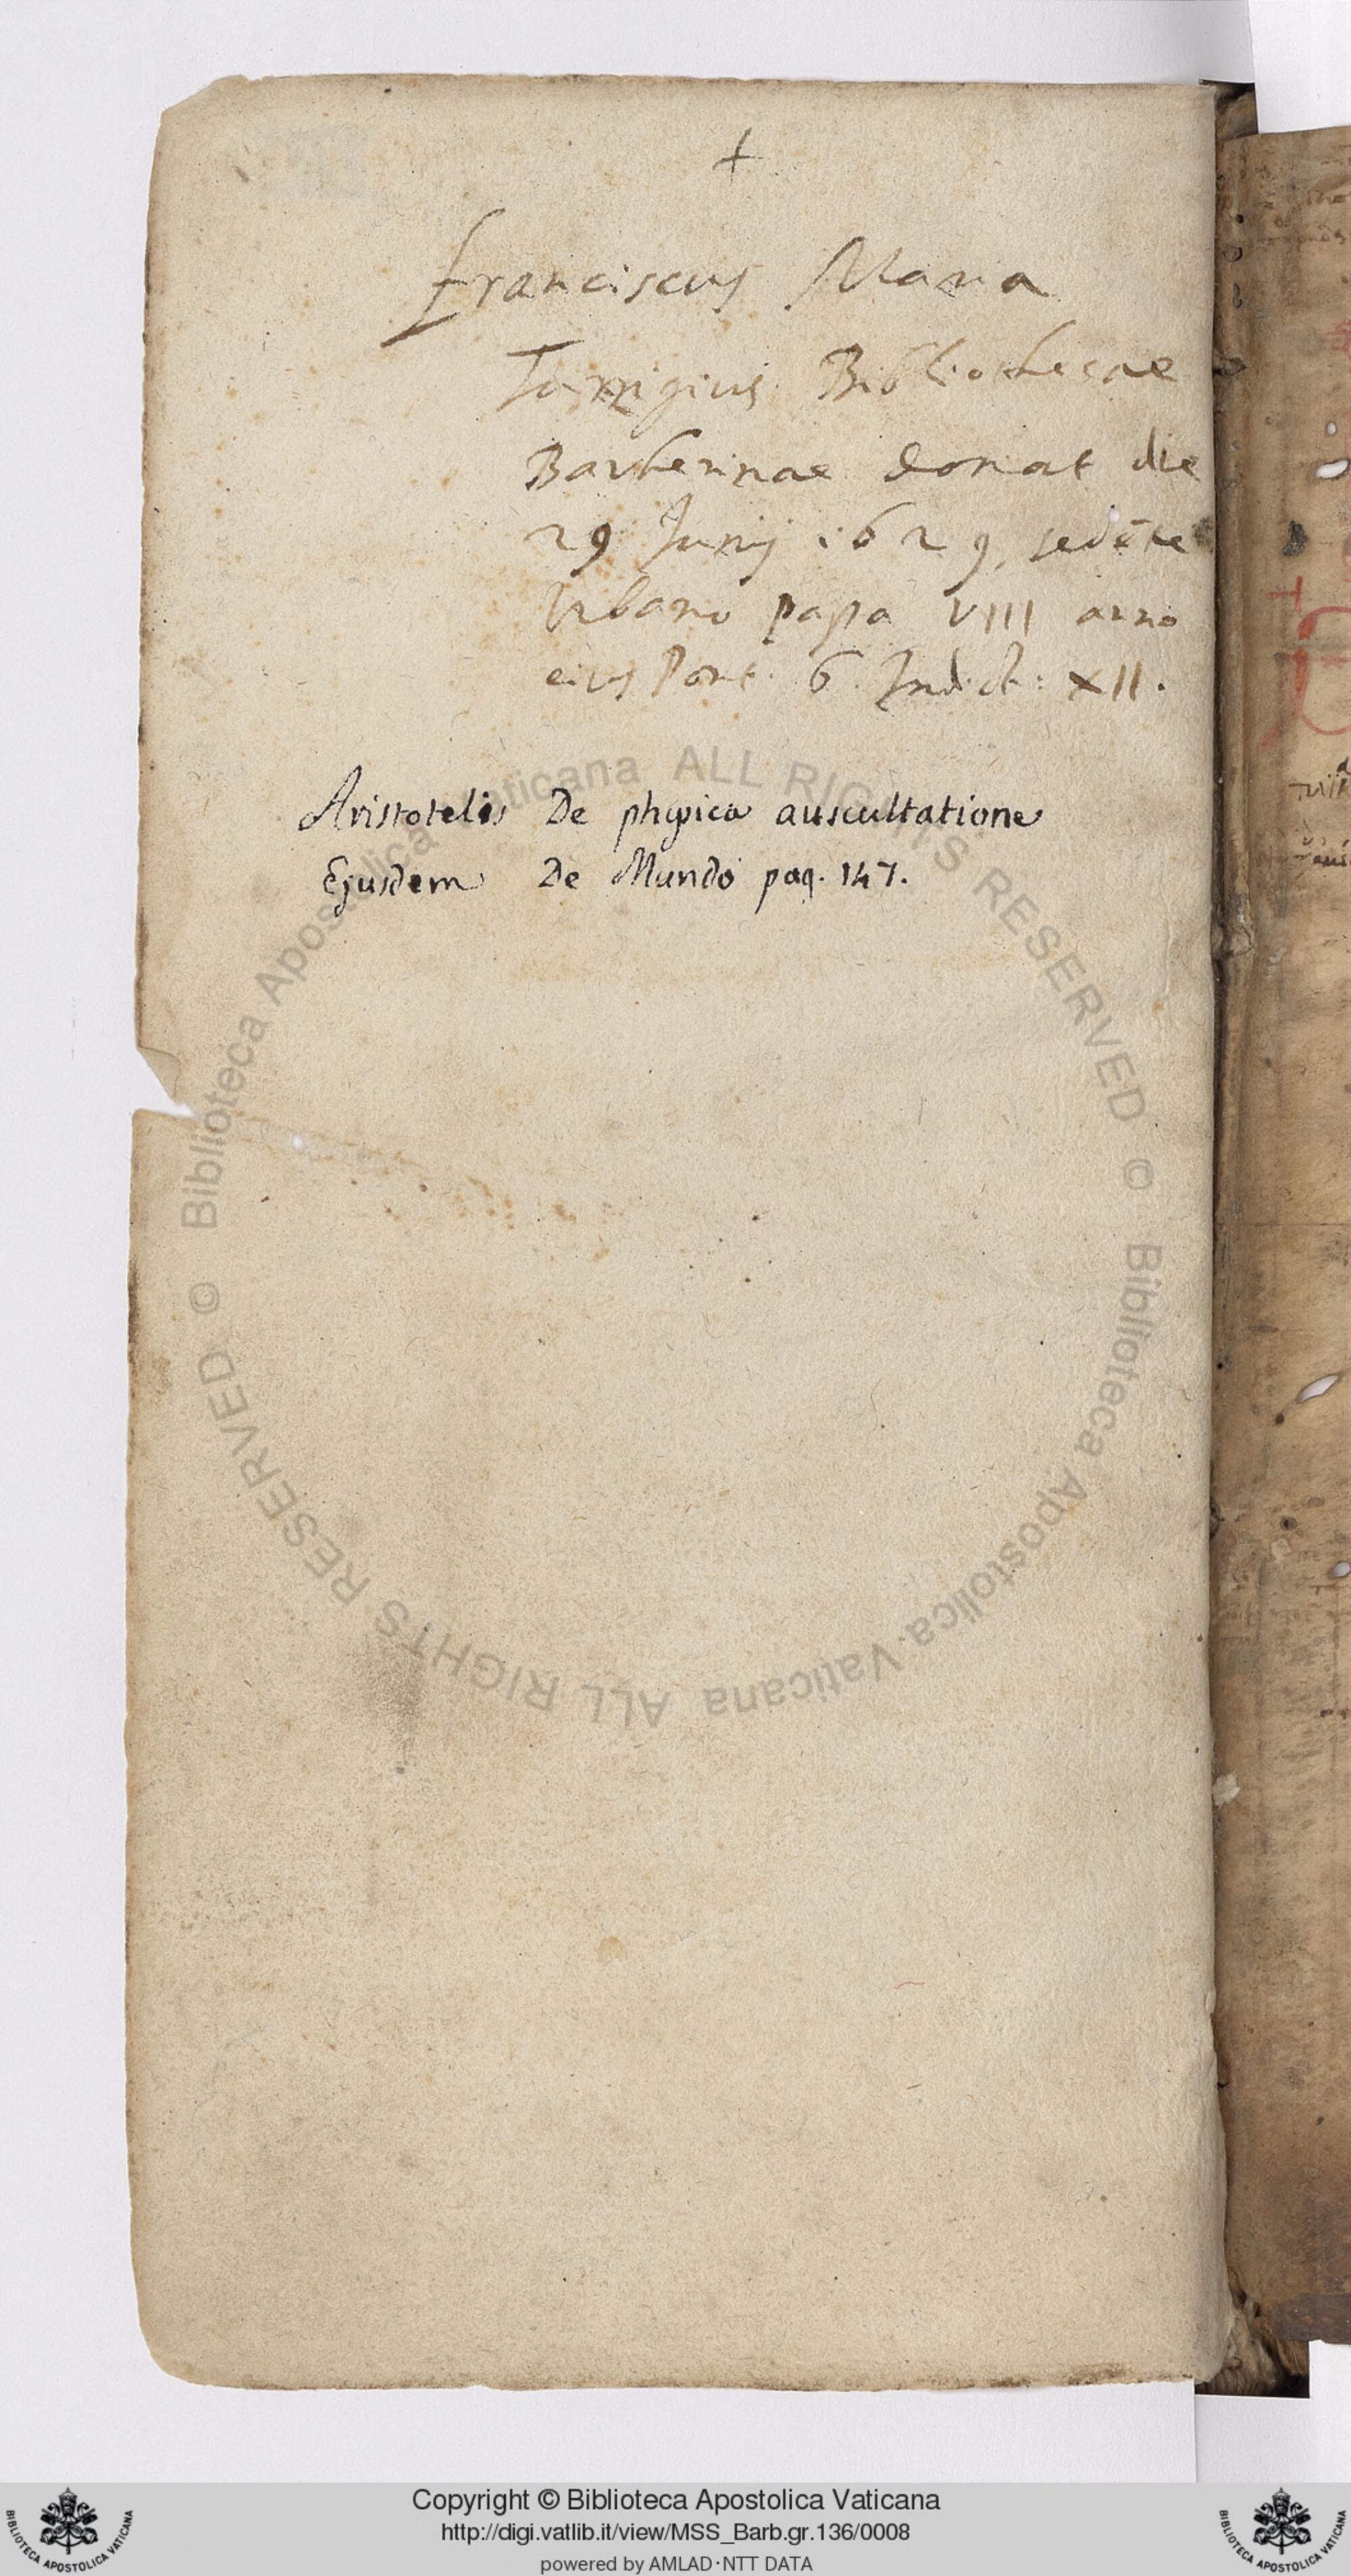 +
Franciscus Maria
Turrigius Bibliothecae
Barberinae donat die
29 Junij 1629, sedēte
Urbano papa VIII anno
eius Pont. 6. Indict: XII.
Aristotelis De physica auscultatione
Ejusdem De Mundo pag. 147.
© Biblioteca Apostolica Vaticana ALL RIGHTS RESERVED © Biblioteca Apostolica Vaticana ALL RIGHTS RESERVED
Copyright © Biblioteca Apostolica Vaticana
http://digi.vatlib.it/view/MSS_Barb.gr.136/0008
powered by AMLAD·NTT DATA
BIBLIOTECA APOSTOLICA VATICANA
BIBLIOTECA APOSTOLICA VATICANA